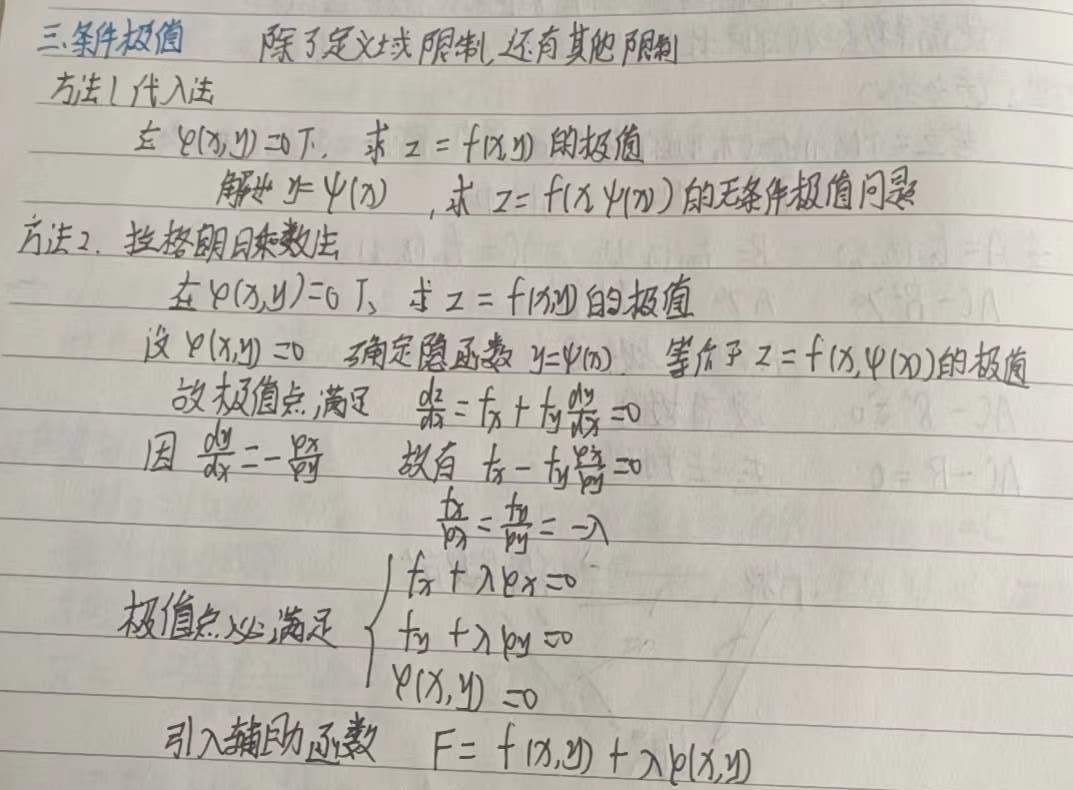 三.条件极值 除了定义域限制,还有其他限制
方法1 代入法
在 φ(x,y)=0下, 求 z=f(x,y)的极值
解出 y=ψ(x) ,求 z=f(x,ψ(x))的无条件极值问题
方法2. 拉格朗日乘数法
在 φ(x,y)=0下, 求 z=f(x,y)的极值
设 φ(x,y)=0 确定隐函数 y=ψ(x) 等价于 z=f(x,ψ(x))的极值
故极值点满足 dz/dx = fx + fy dy/dx = 0
因 dy/dx = - φx/φy 故有 fx - fy φx/φy = 0
fx/φx = fy/φy = -λ
fx + λφx = 0
极值点必满足 { fy + λφy = 0
φ(x,y) = 0
引入辅助函数 F = f(x,y) + λφ(x,y)